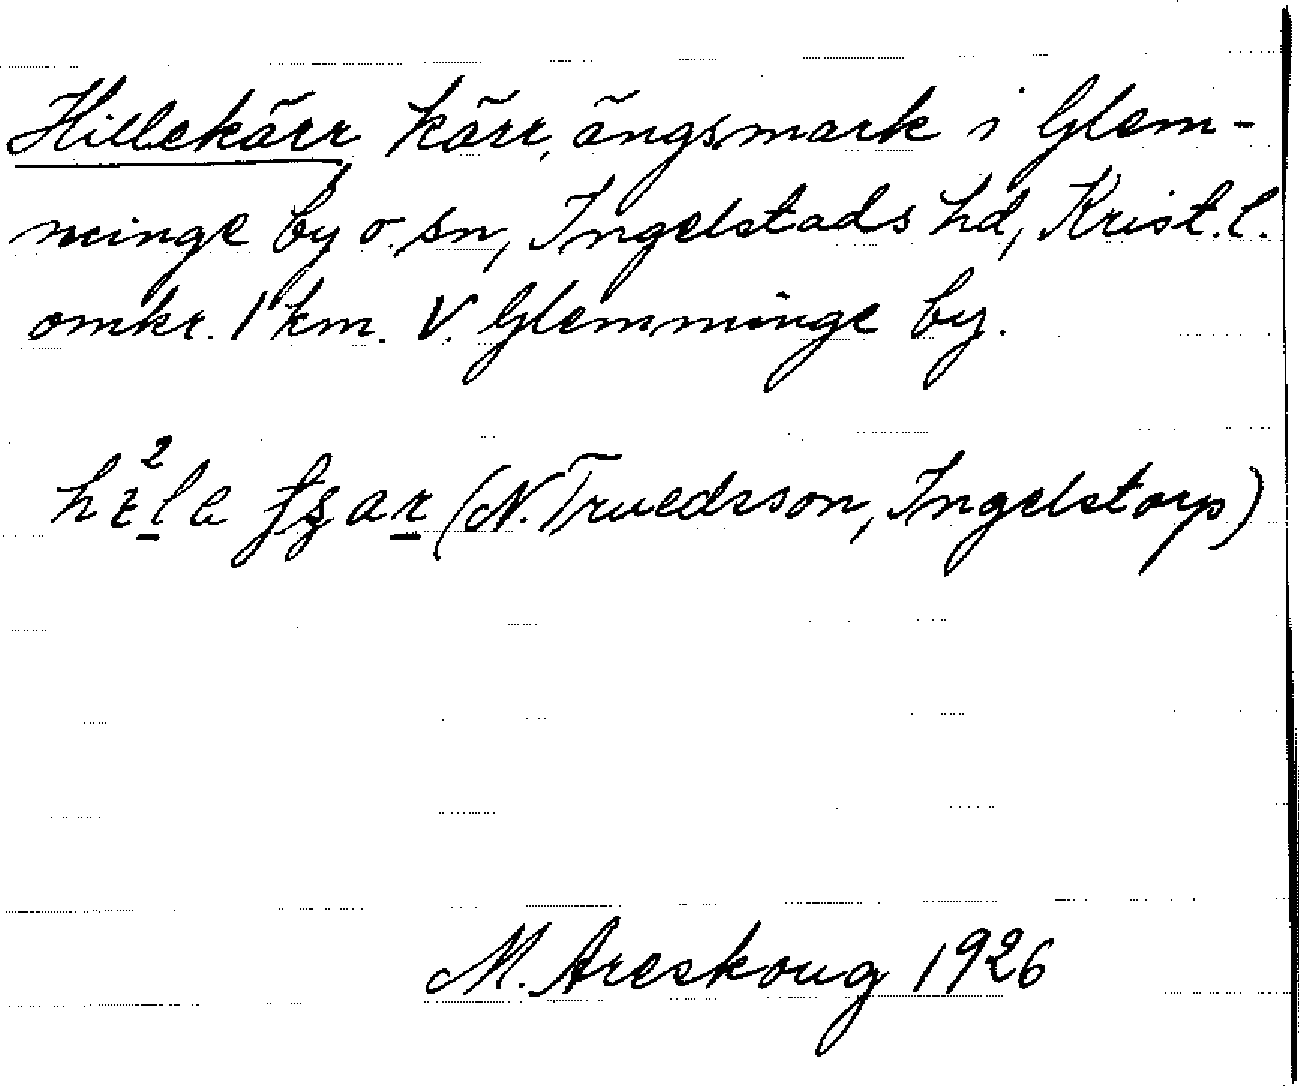 Hillekärr kärr, ängsmark i Glem-
minge by o. sn, Ingelstads hd, Krist. l.
omkr. 1 km. V. Glemminge by.
(N. Truedsson, Ingelstorp)
M. Areskoug 1926